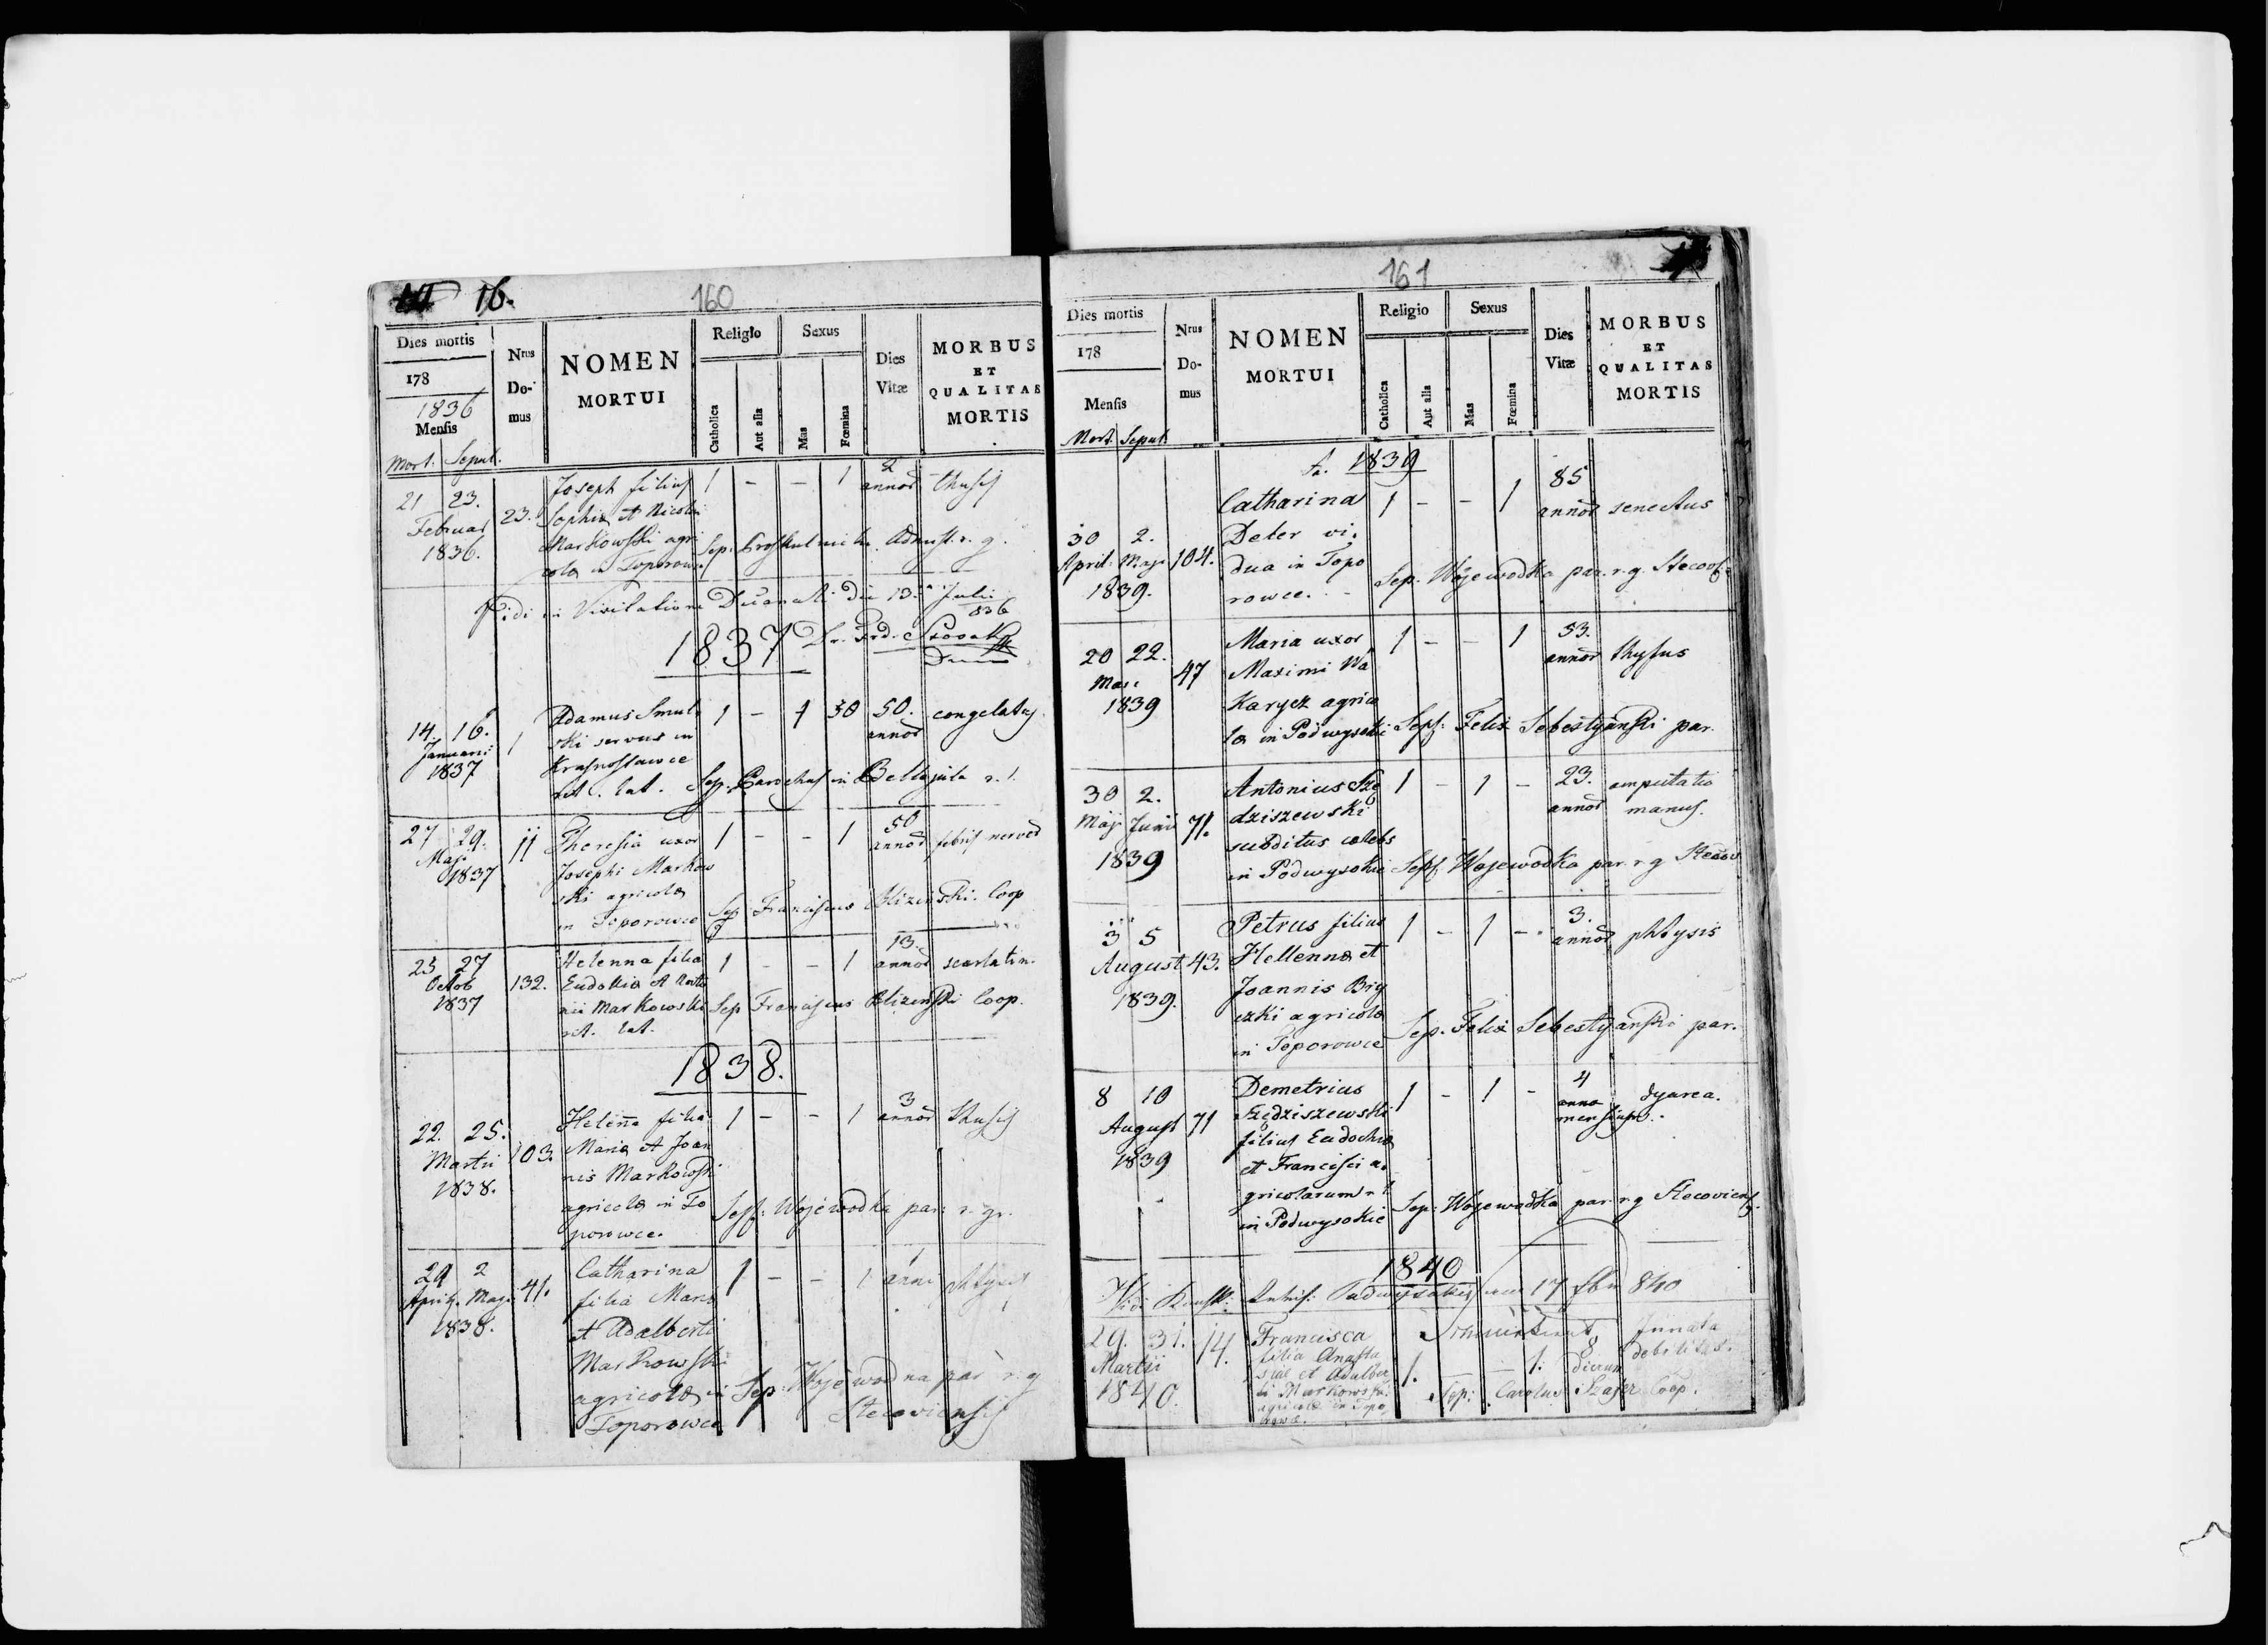 16.
160
Dies mortis
178
1836
Mensis
Mort. Sepul.
Nrus Do- mus
NOMEN
MORTUI
Religio
Catholica
Aut alia
Sexus
Mas
Fœmina
Dies
Vitæ
MORBUS
ET
QUALITAS
MORTIS
21 23. Februar 1836. 23.
Joseph filius 1 - - 1 2 annor
Sophiæ et Nicolai
Markowski agri
colæ in Toporowce Sep. Admst. r. g.
Vidi in Visitatione Decanali die 13. Julii 836
1837
14. 16. Januarii 1837 1
Adamus Smul 1 - 1 30 50. annor congelatus
ski servus in
Krasnostawce
rit. lat. Sep. Parochus in Bełłejuia r. l.
27 29. Maji 1837 11
Theresia uxor 1 - - 1 50 annor febris nervo
Josephi Markow
ski agricolæ
in Toporowce Sep. Franciscus Blizinski Coop
25 27 Octob 1837 132.
Helenna filia 1 - - 1 13. annor scarlatin.
Eudokiæ et
nii Markowski Sep Franciscus Blizinski Coop.
rit. lat.
1838.
22. 25. Martii 1838. 103.
Helenna filia 1 - - 1 3 annor
Mariæ et Joan
nis Markowski
agricolæ in To Sep: Wojewodka par. r. gr.
porowce.
29 2 April. Maji 1838. 41.
Catharina 1 - - 1 1 anni
filia Mariæ
et Adalberti
Markowski
agricolæ in Sep: par r. g
Toporowce Stecoviensis
161
Dies mortis
178
Mensis
Mort. Sepul.
Nrus Do- mus
NOMEN
MORTUI
Religio
Catholica
Aut alia
Sexus
Mas
Fœmina
Dies
Vitæ
MORBUS
ET
QUALITAS
MORTIS
A. 1839
30 2. April: Maji 1839. 104.
Catharina 1 - - 1 85 annor senectus
Deter vi.
dua in Topo Sep. Wojewodka par. r. g. Stecovs
rowce.
20 22. Maii 1839 47
Maria uxor 1 - - 1 53. annor thyfus
Maximi Wa
Karycz agrico
læ in Podwysoki Sep: Felix Sebestyański par.
30 2. Maji Junii 1839 71.
Antonius Szę 1 - 1 - 23. annor amputatio manus.
dziszewski
subditus cælebs
in Podwysokie Sep: Wojewodka par. r g Stecov
3 5 August 1839. 43.
Petrus filius 1 - 1 - 3. annor phtysis
Hellennæ et
Joannis Big
czki agricolæ
in Toporowce Sep. Felix Sebestyański par.
8 10 August 1839 71
Demetrius 1 - 1 - 4 mensium dyarea.
Szędziszewski
filius Eudochiæ
et Francisci a.
gricolarum r l
in Podwysokie Sep: Wojewodka par. r g Stecoviens.
1840
Vidi 17 840
29. 31. Martii 1840. 14.
Francisca 1. - 1. 8 dierum Innata debilitas.
filia Anasta
siæ et Adalber
ti Markowski
agricolæ in Topo Sep: Carolus Szajer Coop.
rowce.